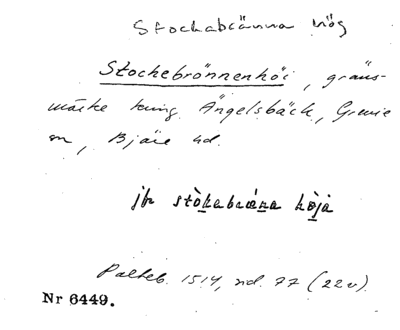 Stockabränna hög
Stockebrönnenhöi, gräns-
märke kring Ängelsbäck, Grevie
sn, Bjäre hd.
jfr stòkabrána hòjä
Palteb. 1514, nd. 77 (22v).
Nr 6449.